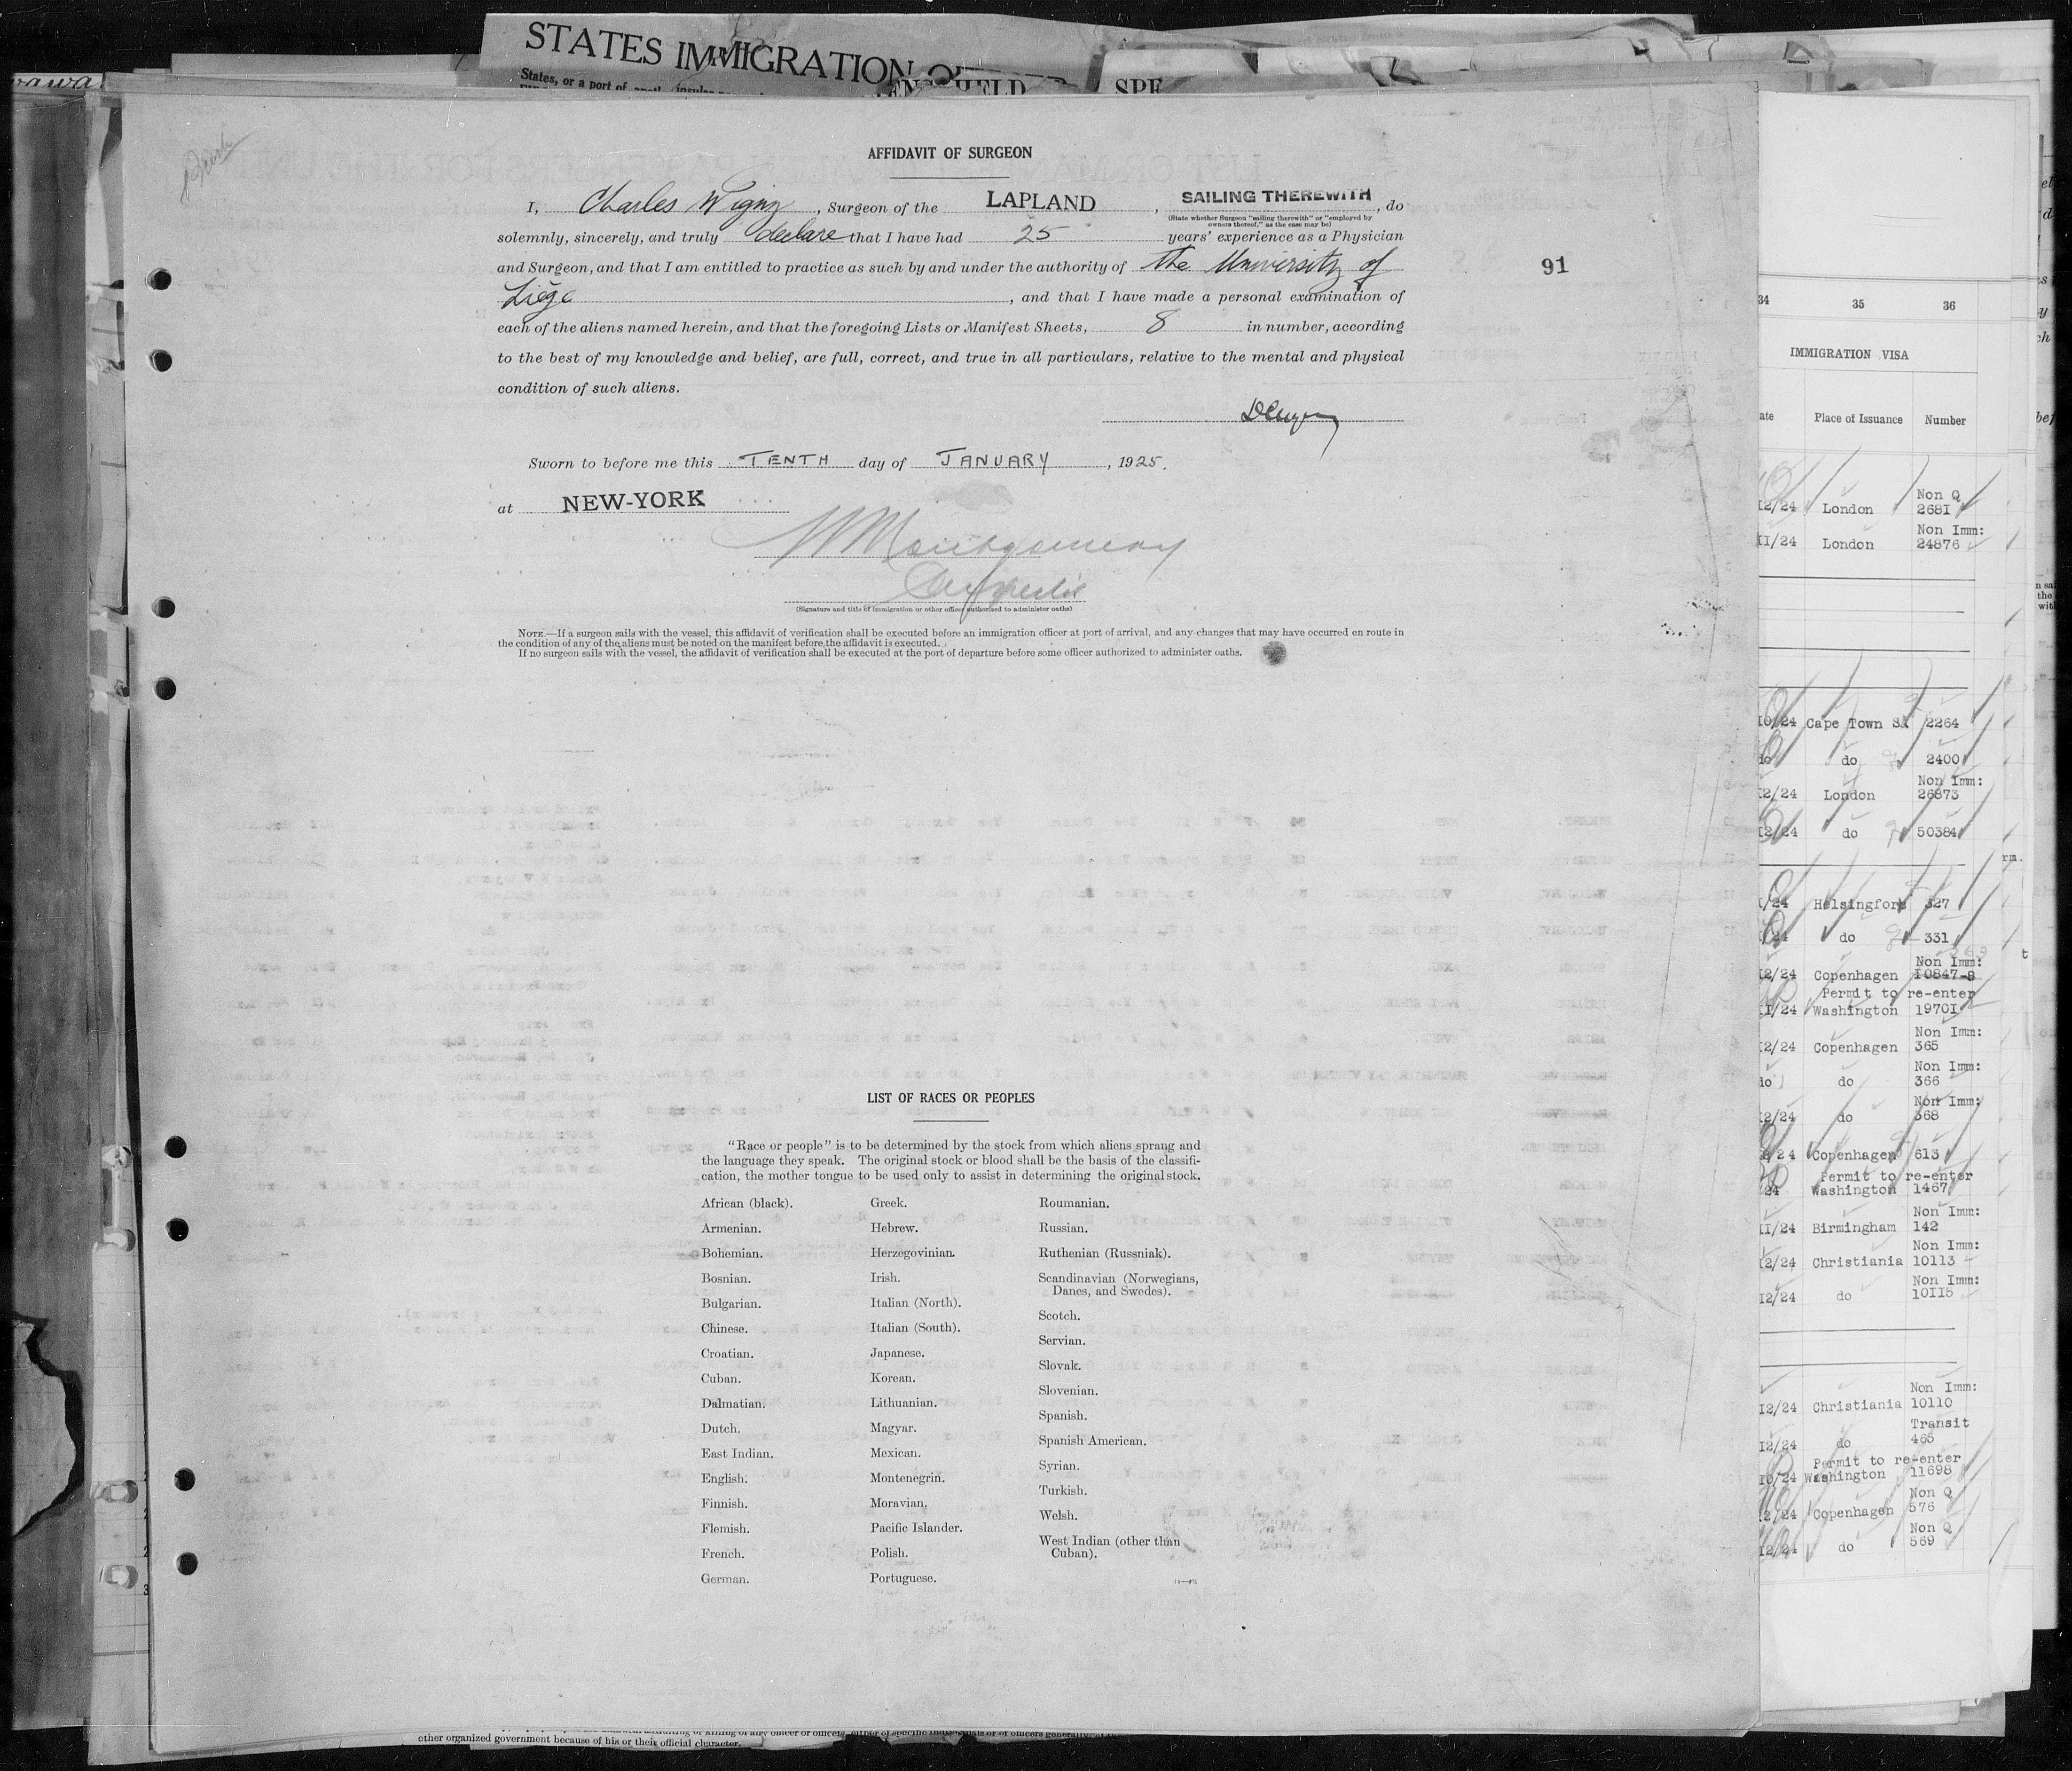 STATES IMMIGRATION
States, or a port of
HELD
SPE
AFFIDAVIT OF SURGEON
I, Charles Wigny, Surgeon of the LAPLAND, SAILING THEREWITH, do
(State whether Surgeon "sailing therewith" or "employed by
owners thereof," as the case may be)
solemnly, sincerely, and truly declare that I have had 25 years' experience as a Physician
and Surgeon, and that I am entitled to practice as such by and under the authority of the University of
Liége, and that I have made a personal examination of
each of the aliens named herein, and that the foregoing Lists or Manifest Sheets, 8 in number, according
to the best of my knowledge and belief, are full, correct, and true in all particulars, relative to the mental and physical
condition of such aliens.
91
Sworn to before me this TENTH day of JANUARY, 1925.
at NEW-YORK
Montgomery
(Signature and title of immigration or other officer authorized to administer oaths)
NOTE.—If a surgeon sails with the vessel, this affidavit of verification shall be executed before an immigration officer at port of arrival, and any changes that may have occurred en route in
the condition of any of the aliens must be noted on the manifest before the affidavit is executed.
If no surgeon sails with the vessel, the affidavit of verification shall be executed at the port of departure before some officer authorized to administer oaths.
LIST OF RACES OR PEOPLES
"Race or people" is to be determined by the stock from which aliens sprang and
the language they speak. The original stock or blood shall be the basis of the classifi-
cation, the mother tongue to be used only to assist in determining the original stock.
African (black).
Armenian.
Bohemian.
Bosnian.
Bulgarian.
Chinese.
Croatian.
Cuban.
Dalmatian.
Dutch.
East Indian.
English.
Finnish.
Flemish.
French.
German.
Greek.
Hebrew.
Herzegovinian.
Irish.
Italian (North).
Italian (South).
Japanese.
Korean.
Lithuanian.
Magyar.
Mexican.
Montenegrin.
Moravian.
Pacific Islander.
Polish.
Portuguese.
Roumanian.
Russian.
Ruthenian (Russniak).
Scandinavian (Norwegians,
Danes, and Swedes).
Scotch.
Servian.
Slovak.
Slovenian.
Spanish.
Spanish American.
Syrian.
Turkish.
Welsh.
West Indian (other than
Cuban).
34 35 36
IMMIGRATION VISA
Place of Issuance Number
Non Q
12/24 London 2681
Non Imm:
11/24 London 24876
10/24 Cape Town SA 2264
do do 2400
Non Imm:
12/24 London 26873
12/24 do 50384
/24 Helsingfors 327
/24 do 331
Non Imm:
12/24 Copenhagen 10847-8
Permit to re-enter
11/24 Washington 19701
Non Imm:
12/24 Copenhagen 365
Non Imm:
do do 366
Non Imm:
12/24 do 368
/24 Copenhagen 613
Permit to re-enter
24 Washington 1467
Non Imm:
11/24 Birmingham 142
Non Imm:
12/24 Christiania 10113
Non Imm:
12/24 do 10115
Non Imm:
12/24 Christiania 10110
Transit
12/24 do 465
Permit to re-enter
10/24 Washington 11698
Non Q
12/24 Copenhagen 576
Non Q
12/24 do 569
other organized government because of his or their official character.